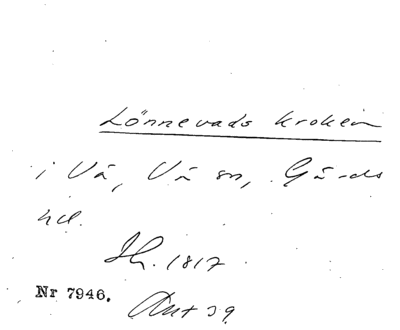 Lönnevads kroken
i Vä, Vä sn, Gärds
hd.
Sk. 1817
Nr 7946. Akt 39